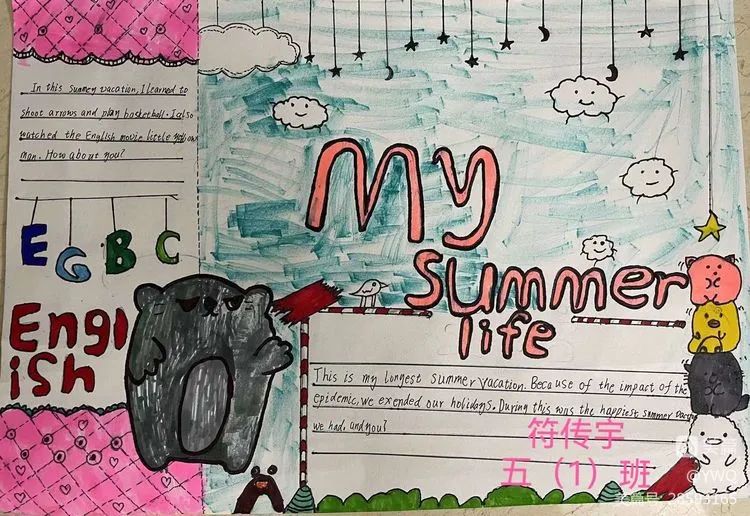 In this sumney vacation, I learned to
shoot arrows and play basketball. I also
watched the English movie little yellow
man. How about you?
E G B C
Engl
ish
My
summer
life
This is my longest summer vacation. Because of the impact of the
epidemic, we exended our holidays. During this was the happiest summer
we had. and you?
符传宇
五（1）班
@YWO